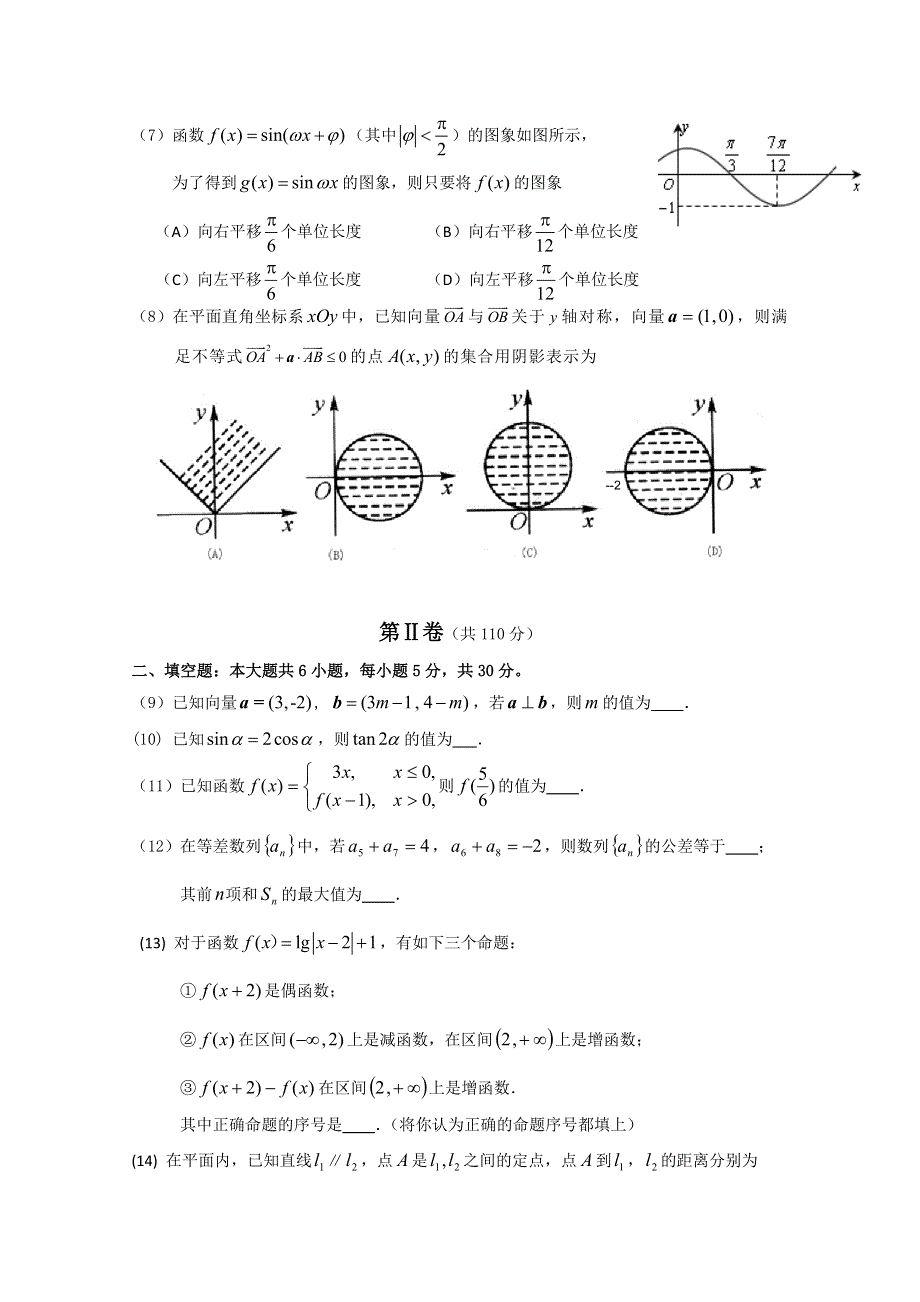 （7）函数 f(x)=sin(ωx+φ)（其中|φ|<π/2）的图象如图所示，
为了得到 g(x)=sin ωx 的图象，则只要将 f(x) 的图象
（A）向右平移 π/6 个单位长度 （B）向右平移 π/12 个单位长度
（C）向左平移 π/6 个单位长度 （D）向左平移 π/12 个单位长度
y π/3 7π/12 O x −1
（8）在平面直角坐标系 xOy 中，已知向量 \overrightarrow{OA} 与 \overrightarrow{OB} 关于 y 轴对称，向量 a=(1,0)，则满
足不等式 \overrightarrow{OA}²+a·\overrightarrow{AB}≤0 的点 A(x,y) 的集合用阴影表示为
y O x (A)
y O x (B)
y O x (C)
y -2 O x (D)
第Ⅱ卷（共110分）
二、填空题：本大题共6小题，每小题5分，共30分。
（9）已知向量 a=(3,-2)，b=(3m−1,4−m)，若 a⊥b，则 m 的值为____．
(10) 已知 sin α=2cos α，则 tan 2α 的值为___．
（11）已知函数 f(x)={3x, x≤0, f(x−1), x>0, 则 f(5/6) 的值为____．
（12）在等差数列{aₙ}中，若 a₅+a₇=4，a₆+a₈=−2，则数列{aₙ}的公差等于____；
其前 n 项和 Sₙ 的最大值为____．
(13) 对于函数 f(x)=lg|x−2|+1，有如下三个命题：
① f(x+2) 是偶函数；
② f(x) 在区间(−∞,2)上是减函数，在区间(2,+∞)上是增函数；
③ f(x+2)−f(x) 在区间(2,+∞)上是增函数．
其中正确命题的序号是____．（将你认为正确的命题序号都填上）
(14) 在平面内，已知直线 l₁∥l₂，点 A 是 l₁,l₂ 之间的定点，点 A 到 l₁，l₂ 的距离分别为